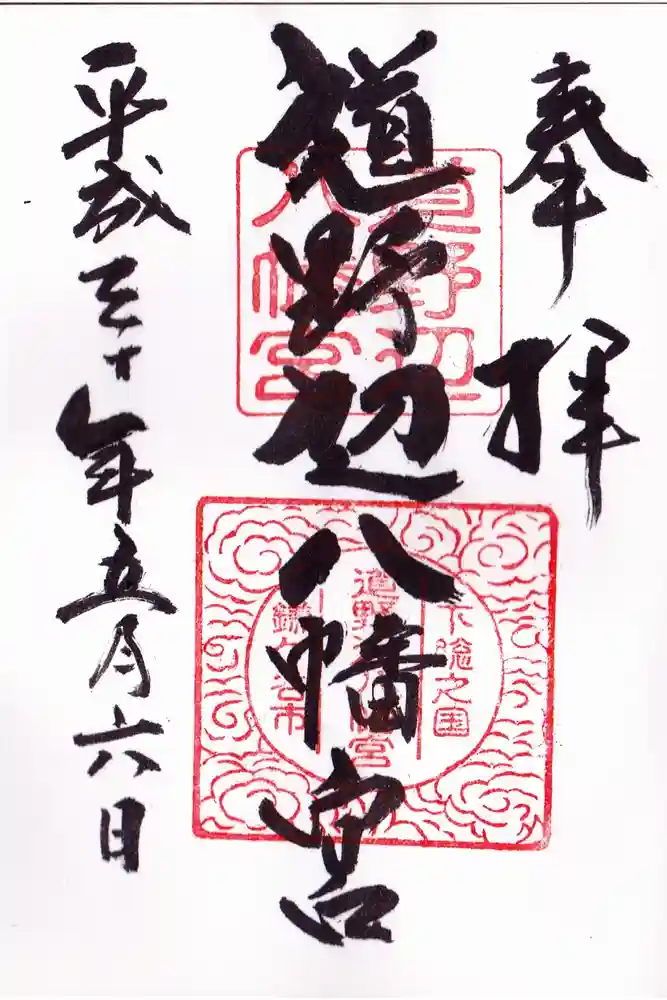 奉拝
道野辺八幡宮
平成三十年五月六日
道野辺八幡宮
下総之国
道野辺八幡宮
鎌ケ谷市